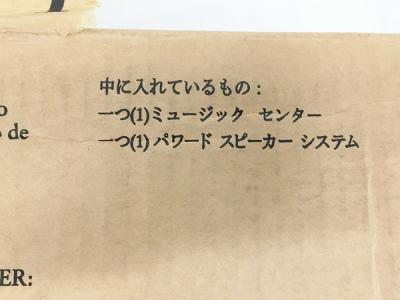 中に入れているもの：
一つ(1)ミュージック センター
一つ(1)パワード スピーカー システム
o
o de
ER: